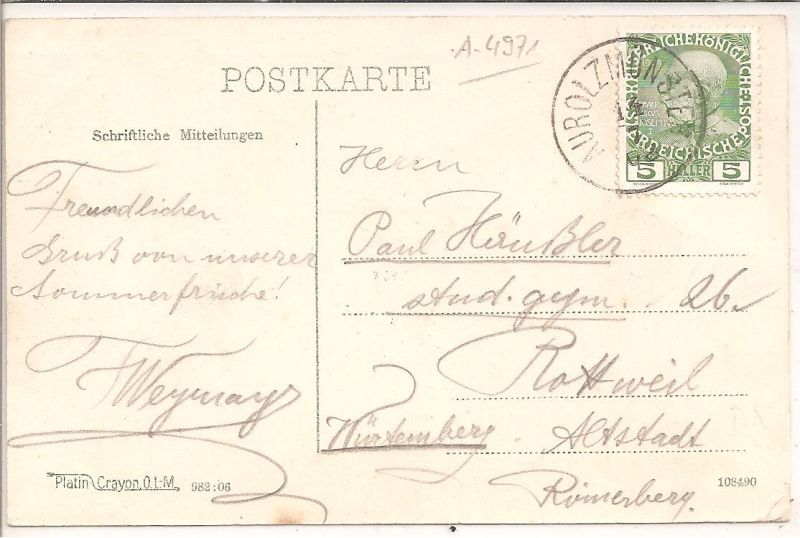 A-4971
POSTKARTE
AUROLZMÜNSTER
5 HELLER 5
Schriftliche Mitteilungen
Freundlichen
Gruß von unserer
Sommerfrische!
Weymayr
Herrn
Paul Häußler
stud. gym. 26.
Rottweil
Württemberg. Altstadt
Römerberg.
Platin Crayon, O.L-M. 982:06
108490